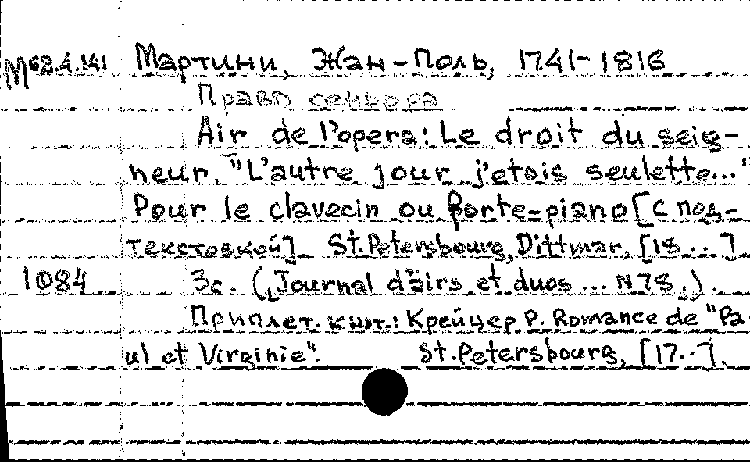 М 62.4.141 Мартини, Жан-Поль, 1741-1816
Право сеньора
Air de l'opera: Le droit du seig-
neur. "L'autre jour j'etois seulette..."
Pour le clavecin ou forte-piano [с под-
текстовкой]. St.Petersbourg, Dittmar, [18...]
1084 3с. (Journal d'airs et duos ... N78.).
Приплет. к шт.: Крейцер Р. Romance de "Pa-
ul et Virginie". St.Petersbourg, [17..].